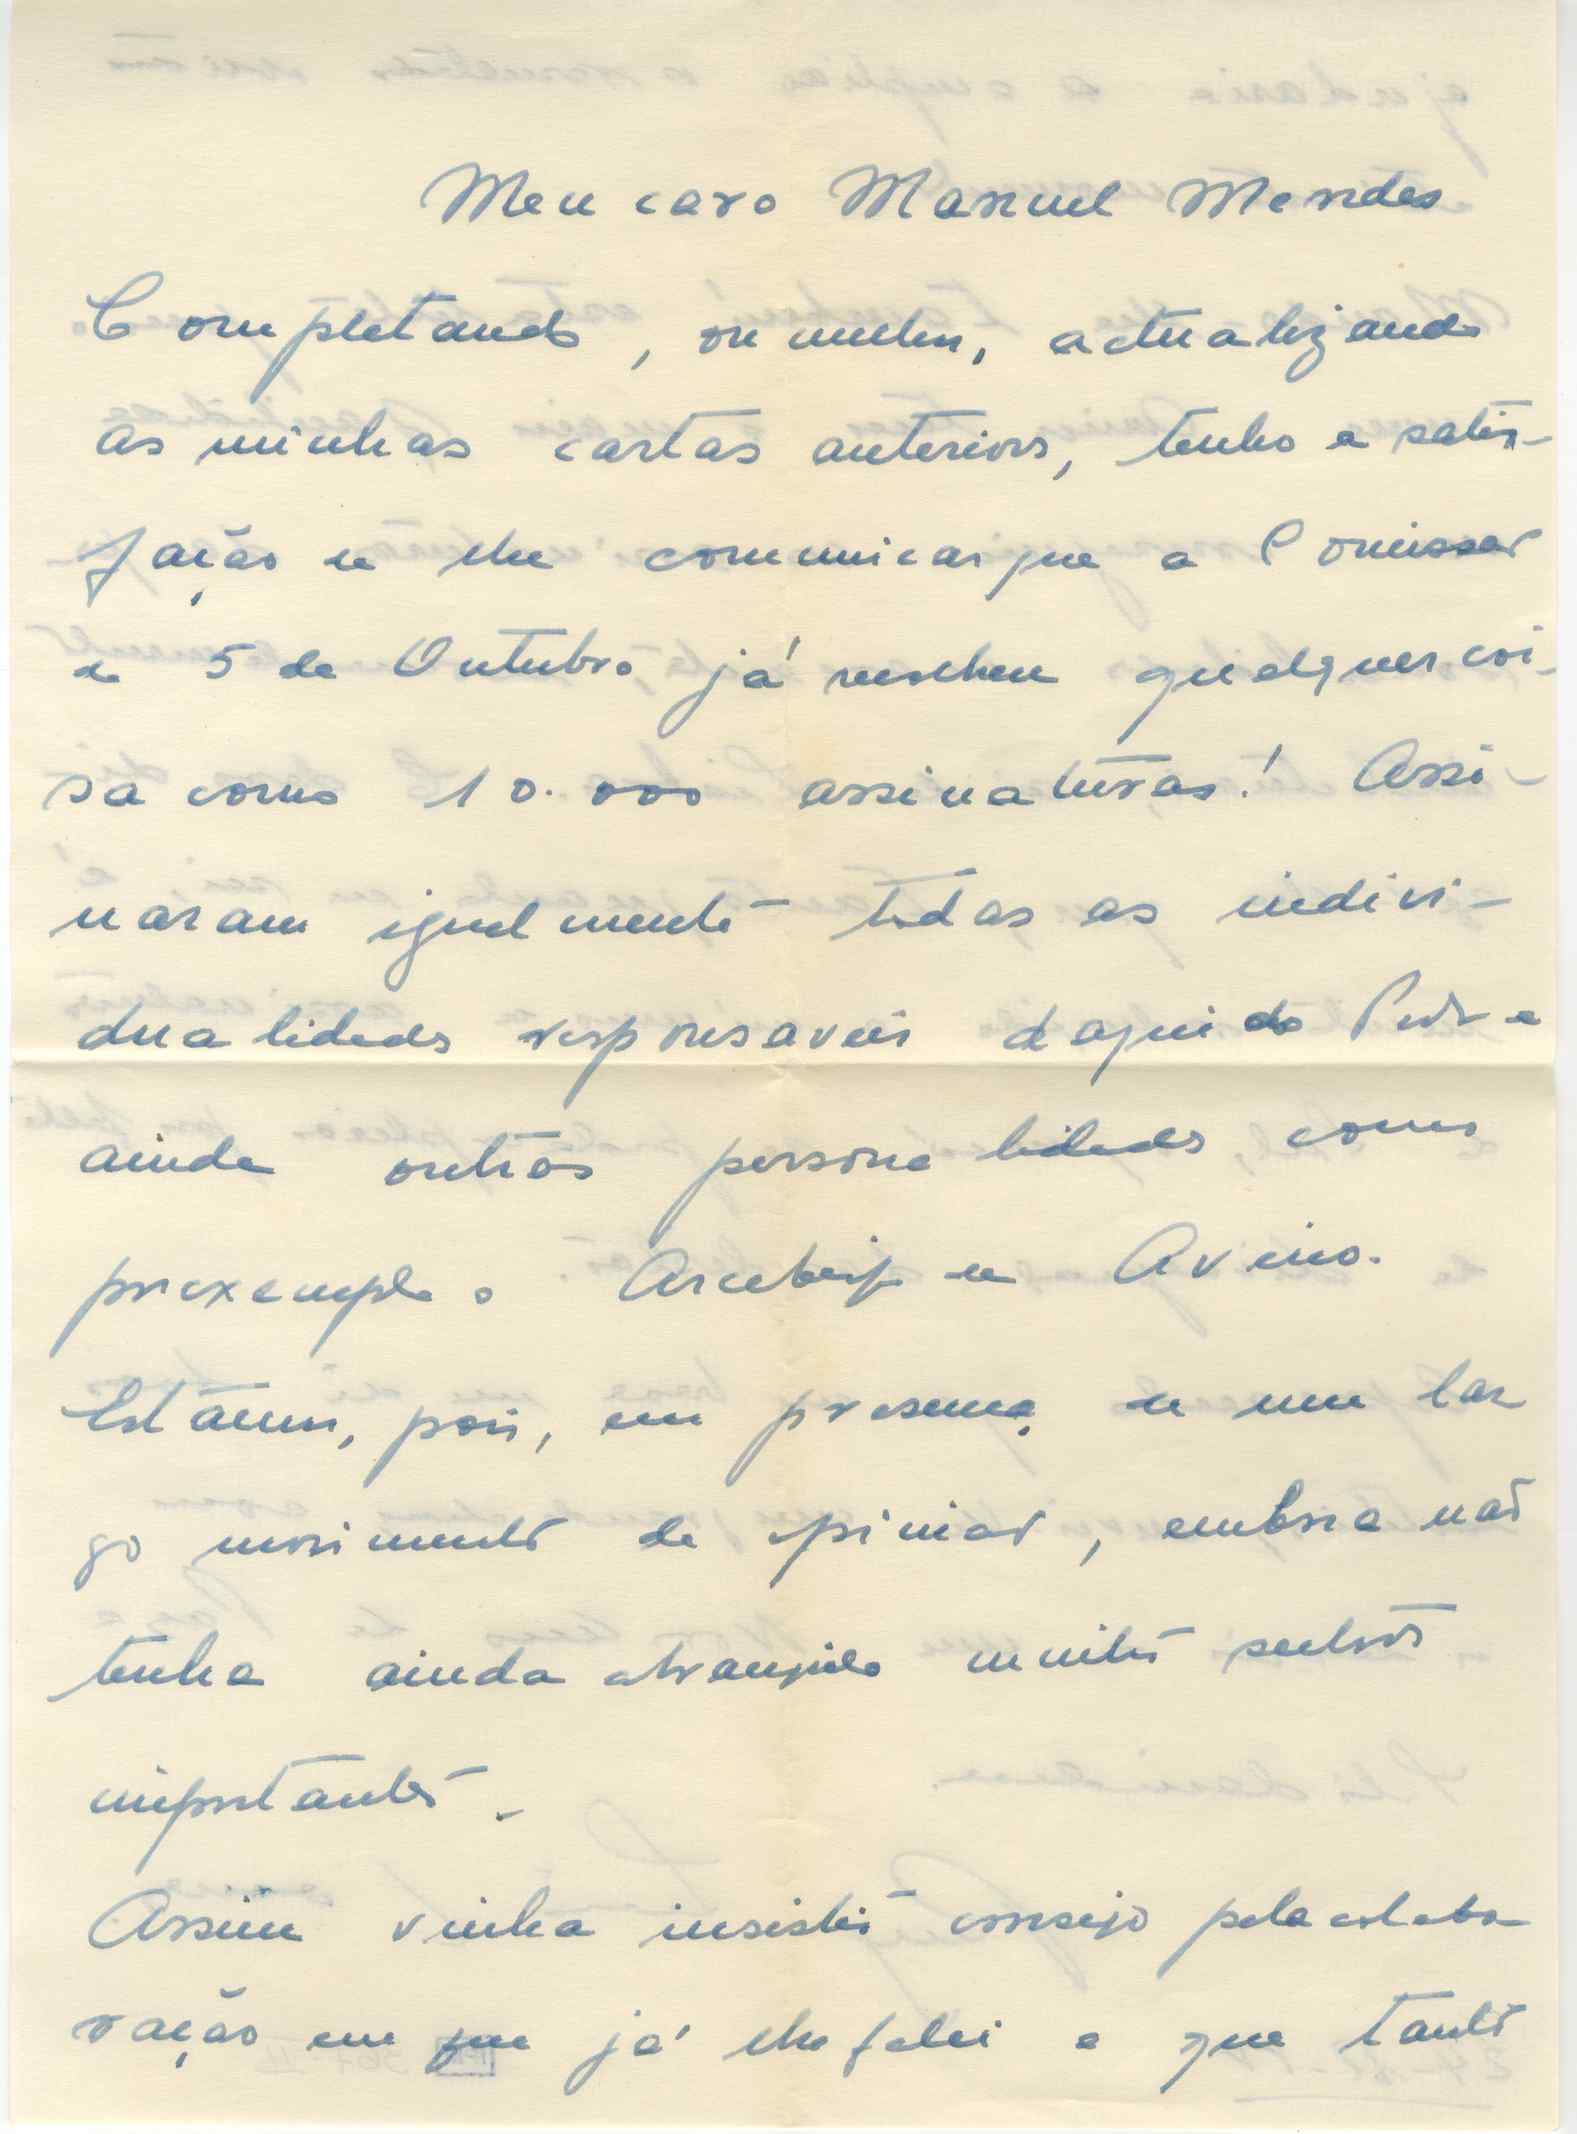 Meu caro Manuel Mendes
Completando, ou melhor, actualizando
as minhas cartas anteriores, tenho a satis-
fação de lhe comunicar que a Comissão
de 5 de Outubro já recebeu qualquer coi-
sa como 10.000 assinaturas! Assi-
naram igualmente todas as indivi-
dualidades responsaveis daqui do Porto e
ainda outras personalidades como
por exemplo o Arcebispo de Aveiro.
Estâmos, pois, em presença de um lar
go movimento de opinião, embora não
tenha ainda abrangido muitos sectores
importantes.
Assim vinha insistir consigo pela colabo
ração em que já lhe falei e que tanto